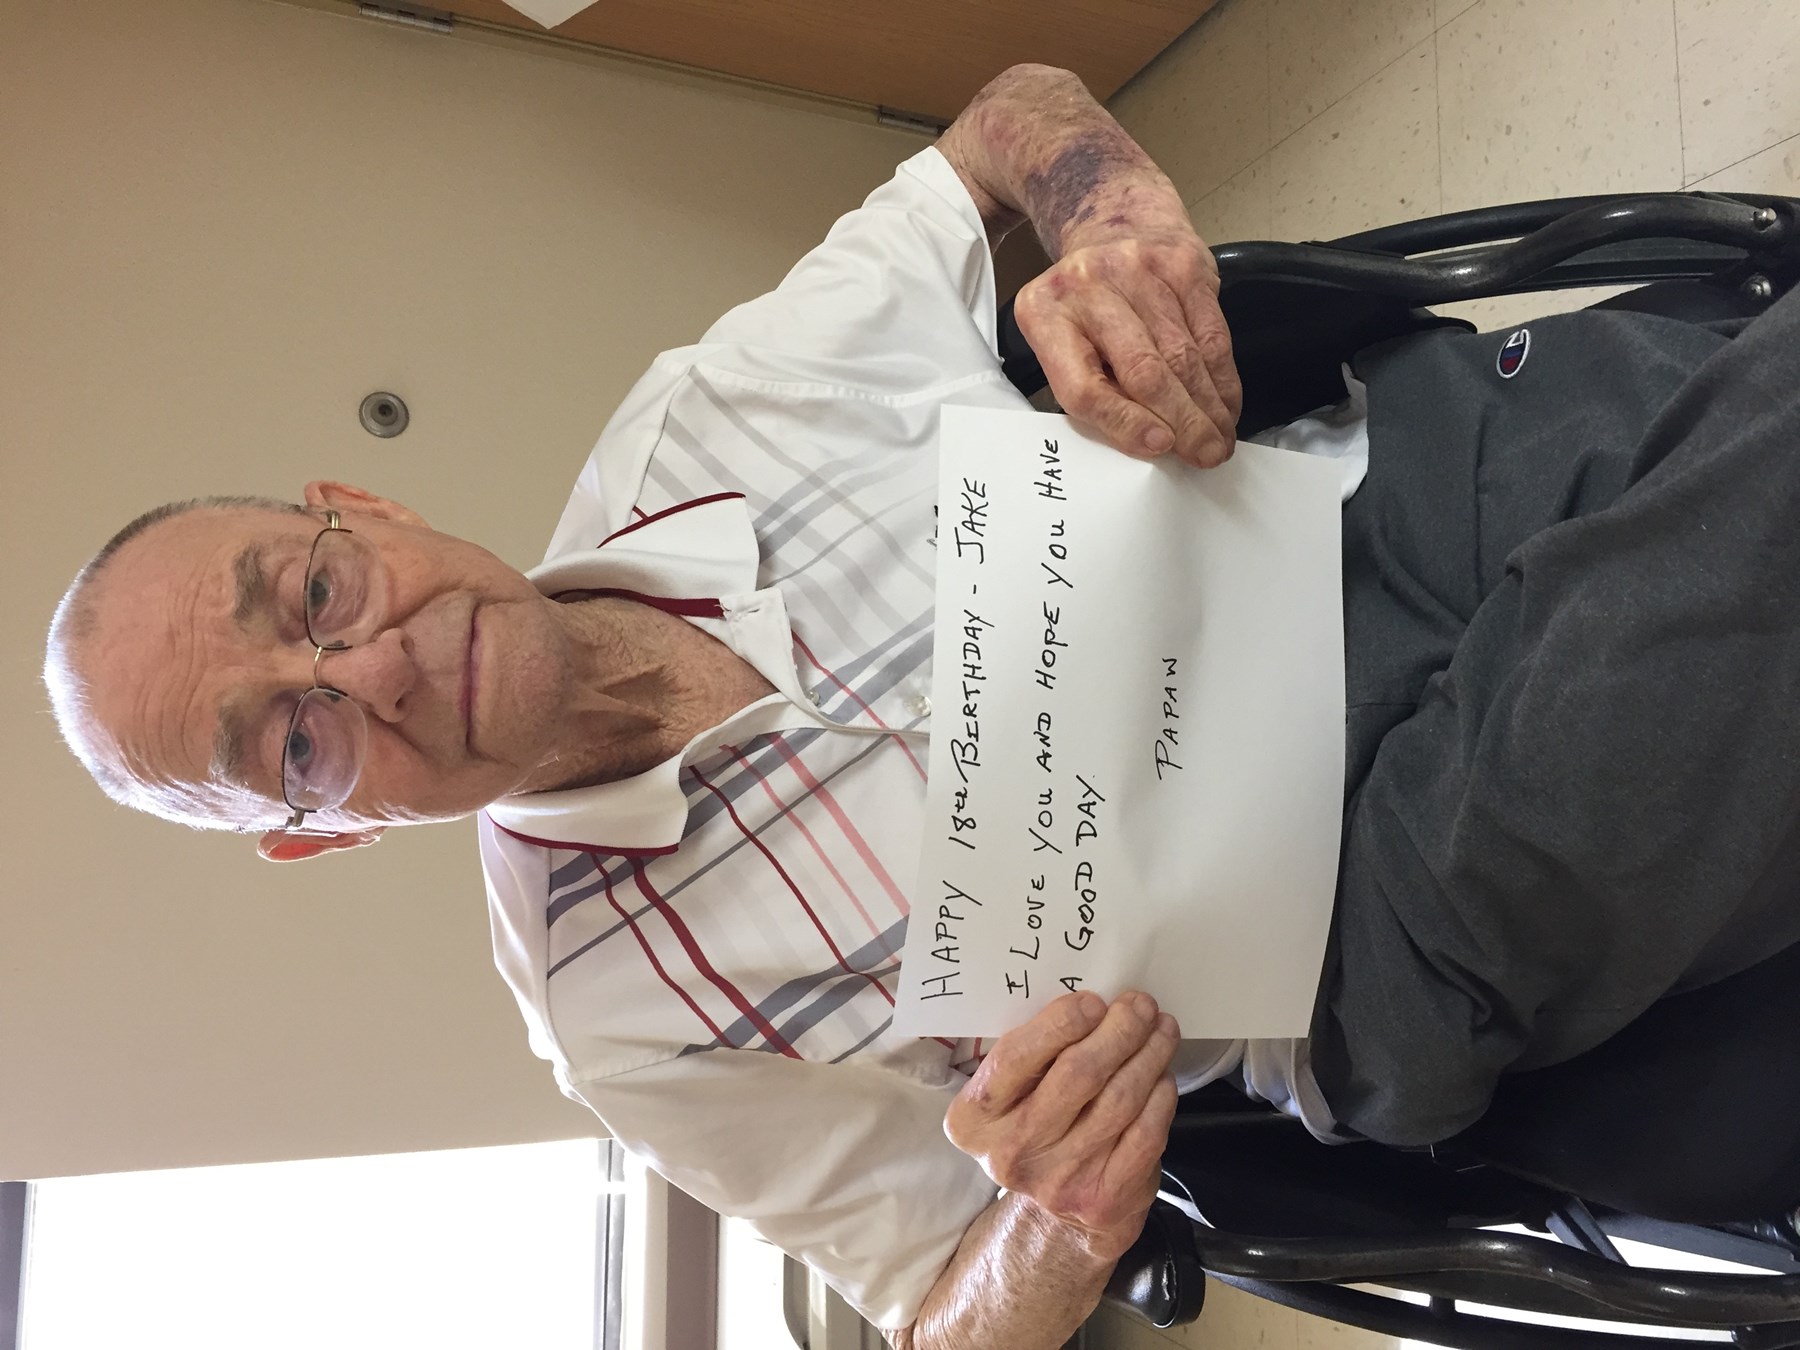 HAPPY 18th BIRTHDAY - JAKE
I LOVE YOU AND HOPE YOU HAVE
A GOOD DAY.
PAPAW